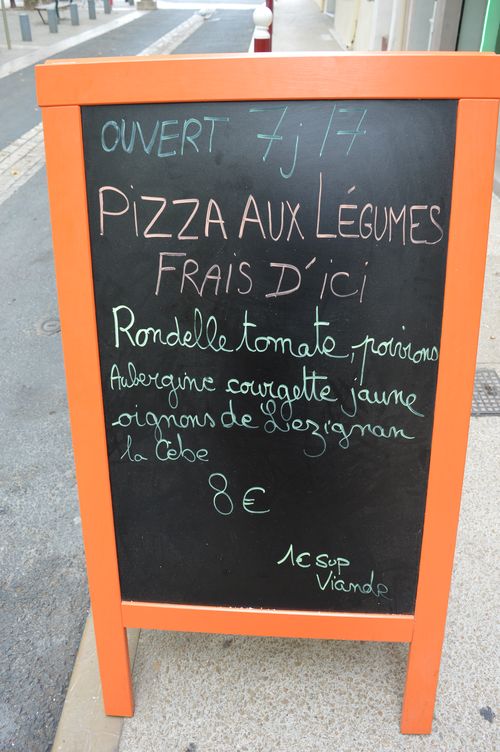 OUVERT 7j/7
PIZZA AUX LÉGUMES
FRAIS D'ICI
Rondelle tomate, poivrons
Aubergine courgette jaune
oignons de Lezignan
la Cèbe
8€
1€ SUP
Viande